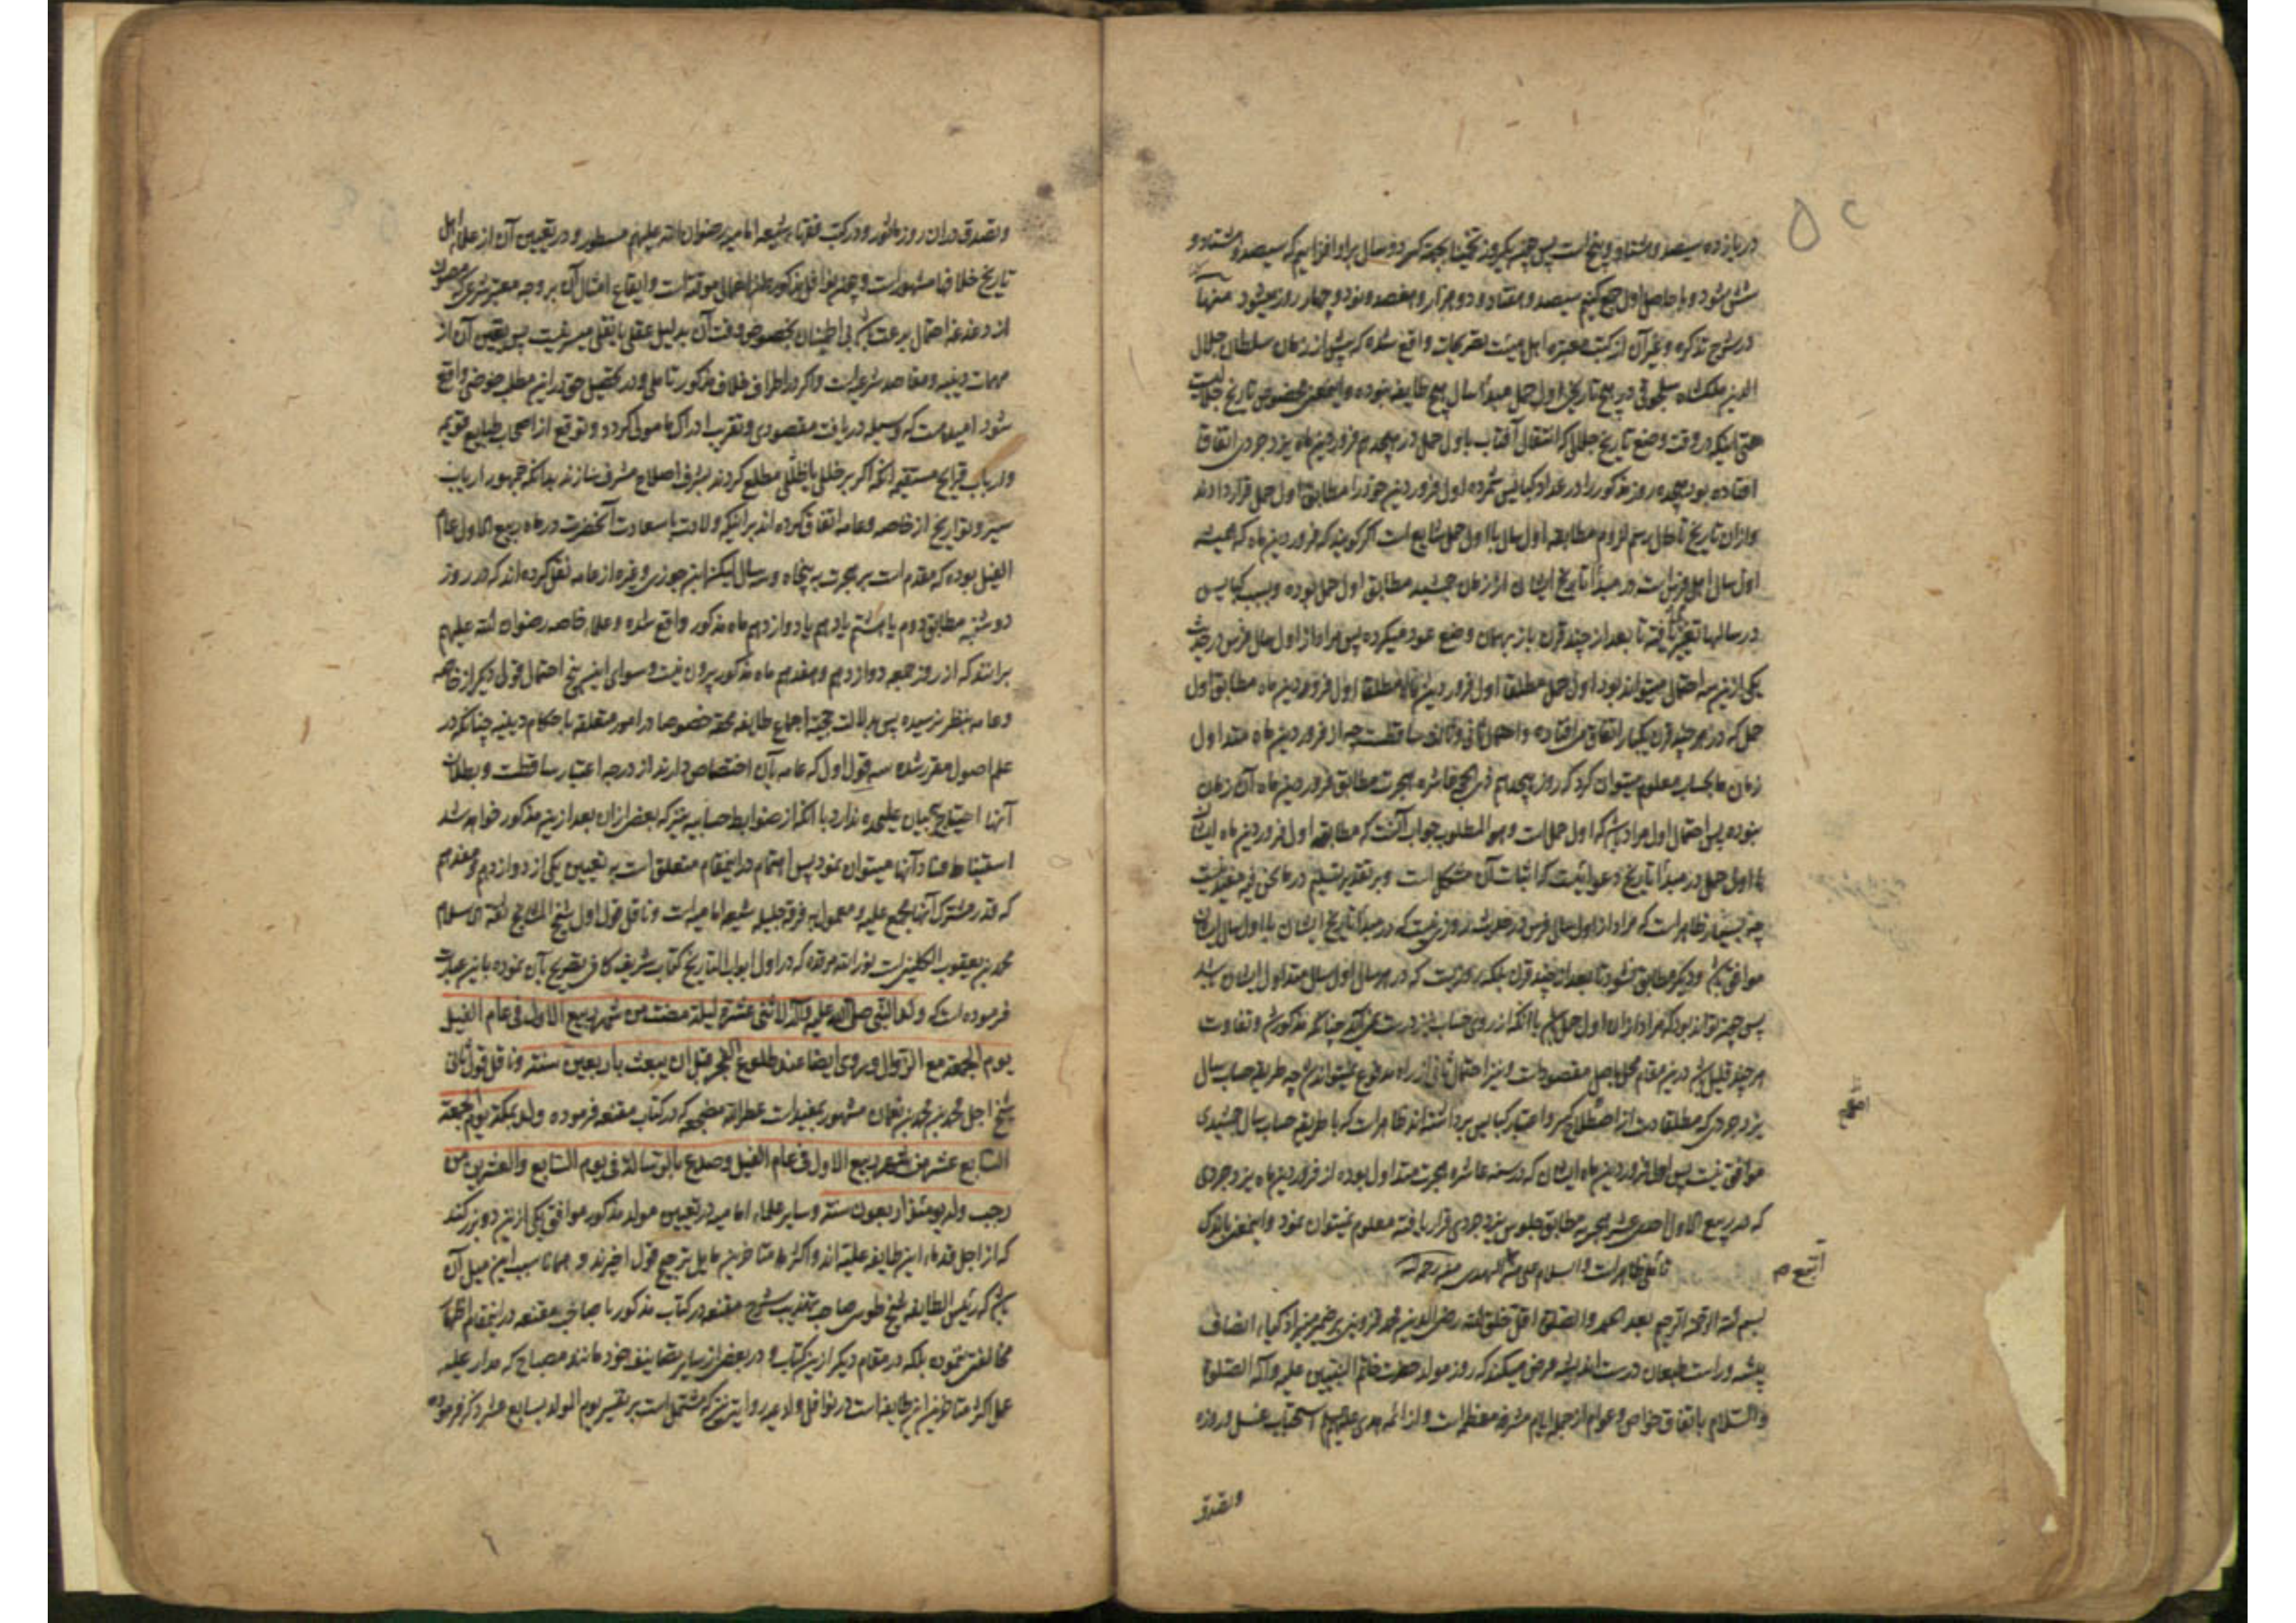 در یازده سیصد و شصت و پنج است پس چون یکروز تخمینا بجهت کسر دو سال برا و افزاییم که سیصد و هشتاد و
شش شود و با حاصل اول جمع کنیم سیصد و هفتاد و دو هزار و هفتصد و نود و چهار روز میشود منها
در شرح تذکره و غیر آن از کتب معتبره اهل هیئت تصریحات واقع شده که پیش از زمان سلطان جلال
الدین ملکشاه سلجوقی در هیچ تاریخی اول حمل مبدأ سال هیچ طایفه نبوده و اینمعنی مخصوص تاریخ جلالیست
حتی اینکه در وقت وضع تاریخ جلالی که انتقال آفتاب باول حمل در هیجدهم فروردین ماه یزدجردی اتفاقا
افتاده بود هیجده روز مذکور را در عداد کبایس شمرده اول فروردین خود را مطابق اول حمل قرار دادند
و از آن تاریخ تا حال رسم لزوم مطابقه اول سال با اول حمل شایع است اگر گویند که فروردین ماه که همیشه
اول سال اهل فرس است در مبدأ تاریخ ایشان از زمان جمشید مطابق اول حمل بوده و بسبب کبایس
در سالها تغیر یافته تا بعد از چند قرن باز بهمان وضع عود میکرده پس مراد از اول سال فرس در حدیث
یکی از این سه احتمال میتواند بود اول حمل مطلقا اول فروردین ماه مطلقا اول فروردین ماه مطابق اول
حمل که در هر چند قرن یکبار اتفاق می افتاده و احتمال ثانی و ثالث ساقطست چه از فروردین ماه متداول
زمان ما بحساب معلوم میتوان کرد که روز هیجدهم ذی الحجه عاشره هجرت مطابق فروردین ماه آن زمان
نبوده پس احتمال اول مراد باشد که اول حمل است و هو المطلوب جواب آنست که مطابقه اول فروردین ماه ایشان
با اول حمل در مبدأ تاریخ دعوائیست که اثبات آن مشکل است و بر تقدیر تسلیم در ما نحن فیه مفید نیست
چه بسیار ظاهر است که مراد از اول سال فرس در حدیث روزی نیست که در مبدأ تاریخ ایشان با اول سال ایشان
موافق باشد و دیگر مطابق نشود تا بعد از چند قرن بلکه روزیست که در هر سال اول سال متداول ایشان باشد
پس چون تواند بود که مراد از آن اول حمل باشد با آنکه از روی حساب نیز درست نمی آید چنانکه مذکور شد و تفاوت
هر چند قلیل باشد درین مقام مخل باصل مقصود است و نیز احتمال ثانی از راه مدفوع نمیتواند شد چه طریقه حساب سال
یزدجردی که مطلقا دست از اصطلاح کسر و اعتبار کبایس برداشته اند ظاهر است که با طریقه حساب سال جمشیدی
موافق نیست پس اول فروردین ماه ایشان که در سنه عاشره هجرت متداول بوده از فروردین ماه یزدجردی
که در ربیع الاول حادی عشر هجریه مطابق جلوس یزدجردی قرار یافته معلوم نمیتوان نمود و اینمعنی باندک
تأملی ظاهر است و السلام علی من اتبع الهدی منه رحمه الله
بسم الله الرحمن الرحیم بعد الحمد و الصلوة اقل خلق الله رضی الدین محمد قزوینی بر ضمیر منیر اذکیاء انصاف
پیشه و راست طبعان درست اندیشه عرض میکند که روز مولد حضرت خاتم النبیین علیه و آله الصلوة
والسلام باتفاق خواص و عوام از جمله ایام مشرفه معظمه است و از ائمه هدی علیهم السلام استحباب غسل و روزه
اتبع م
وتصدق
وتصدق در آن روز ماثور و در کتب فقهاء شیعه امامیه رضوان الله علیهم مسطور و در تعیین آن از علماء اهل
تاریخ خلافها مشهور است و چون نوافل مذکوره از اعمال موقته است و ایقاع امثال آن بر وجه معتبر شرعی که مصون
از دغدغه احتمال بدعت باشد بی اطمینان بخصوص وقت آن بدلیل عقلی یا نقلی میسر نیست پس تعیین آن از
مهمات دینیه و مقاصد شرعیه است و اگر در اطراف خلاف مذکور تاملی و در تحصیل حق در این مطلب خوضی واقع
شود امید هست که وسیله دریافت مقصودی و تقریب ادراک مامولی گردد و توقع از اصحاب طبایع قویمه
و ارباب قرایح مستقیمه آنکه اگر بر خللی یا ظللی مطلع گردند بشرف اصلاح مشرف سازند بدانکه جمهور ارباب
سیر و تواریخ از خاصه و عامه اتفاق کرده اند بر اینکه ولادت با سعادت آنحضرت در ماه ربیع الاول عام
الفیل بوده که مقدم است بر هجرت به پنجاه و سه سال لیکن ابن جوزی و غیره از عامه نقل کرده اند که در روز
دوشنبه مطابق دوم یا هشتم یا دهم یا دوازدهم ماه مذکور واقع شده و علماء خاصه رضوان الله علیهم
برانند که از روز جمعه دوازدهم و هفدهم ماه مذکور بیرون نیست و سوای این پنج احتمال قول دیگر از خاصه
و عامه بنظر نرسیده پس بدلالت حجیت اجماع طایفه محقه خصوصا در امور متعلقه باحکام دینیه چنانکه در
علم اصول مقرر شده سه قول اول که عامه بآن اختصاص دارند از درجه اعتبار ساقطست و بطلان
آنها احتیاج ببیان علیحده ندارد با آنکه از ضوابط حسابیه نیز که بعضی از آن بعد از این مذکور خواهد شد
استنباط فساد آنها میتوان نمود پس اهتمام در اینمقام متعلق است به تعیین یکی از دوازدهم و هفدهم
که قدر مشترک آنها مجمع علیه و معمول به فرقه جلیله شیعه امامیه است و ناقل قول اول شیخ المشایخ ثقة الاسلام
محمد بن یعقوب الکلینی است نور الله مرقده که در اول ابواب التاریخ کتاب شریف کافی تصریح بآن نموده باین عبارت
فرموده است که ولد النبی صلی الله علیه و آله لاثنتی عشرة لیلة مضت من شهر ربیع الاول فی عام الفیل
یوم الجمعة مع الزوال و روی ایضا عند طلوع الفجر قبل ان یبعث باربعین سنة و ناقل قول ثانی
شیخ اجل محمد بن محمد بن نعمان مشهور بمفید است عطر الله مضجعه که در کتاب مقنعه فرموده ولد بمکة یوم الجمعة
السابع عشر من شهر ربیع الاول فی عام الفیل وصدع بالرسالة فی یوم السابع والعشرین من
رجب وله یومئذ اربعون سنة و سایر علماء امامیه در تعیین مولد مذکور موافق یکی از این دو بزرگند
که از اجل قدماء این طایفه علیه اند و اکثر متاخرین مایل بترجیح قول اخیرند و همانا سبب این میل آن
باشد که رئیس الطایفه شیخ طوسی صاحب تهذیب شرح مقنعه در کتاب مذکور با صاحب مقنعه در اینمقام اظهار
مخالفتی ننموده بلکه در مقام دیگر از این کتاب و در بعضی از سایر تصانیف خود مانند مصباح که مدار علیه
عمل اکثر متاخرین این طایفه است در نوافل و ادعیه روایتی نیز که مشتمل است بر تفسیر یوم المولد بسابع عشر ذکر فرموده